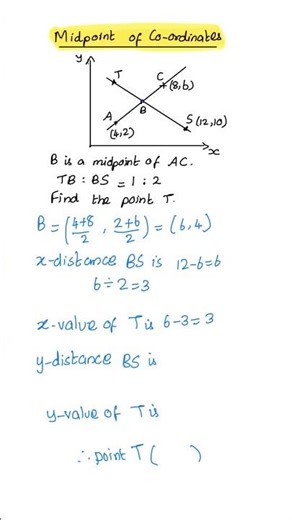 Midpoint of Co-ordinates
y
T
C
(8,6)
B
A
(4,2)
S (12,10)
x
B is a midpoint of AC.
TB : BS = 1 : 2
Find the point T.
B = (4+8/2, 2+6/2) = (6,4)
x-distance BS is 12-6=6
6÷2=3
x-value of T is 6-3=3
y-distance BS is
y-value of T is
∴ point T (     )